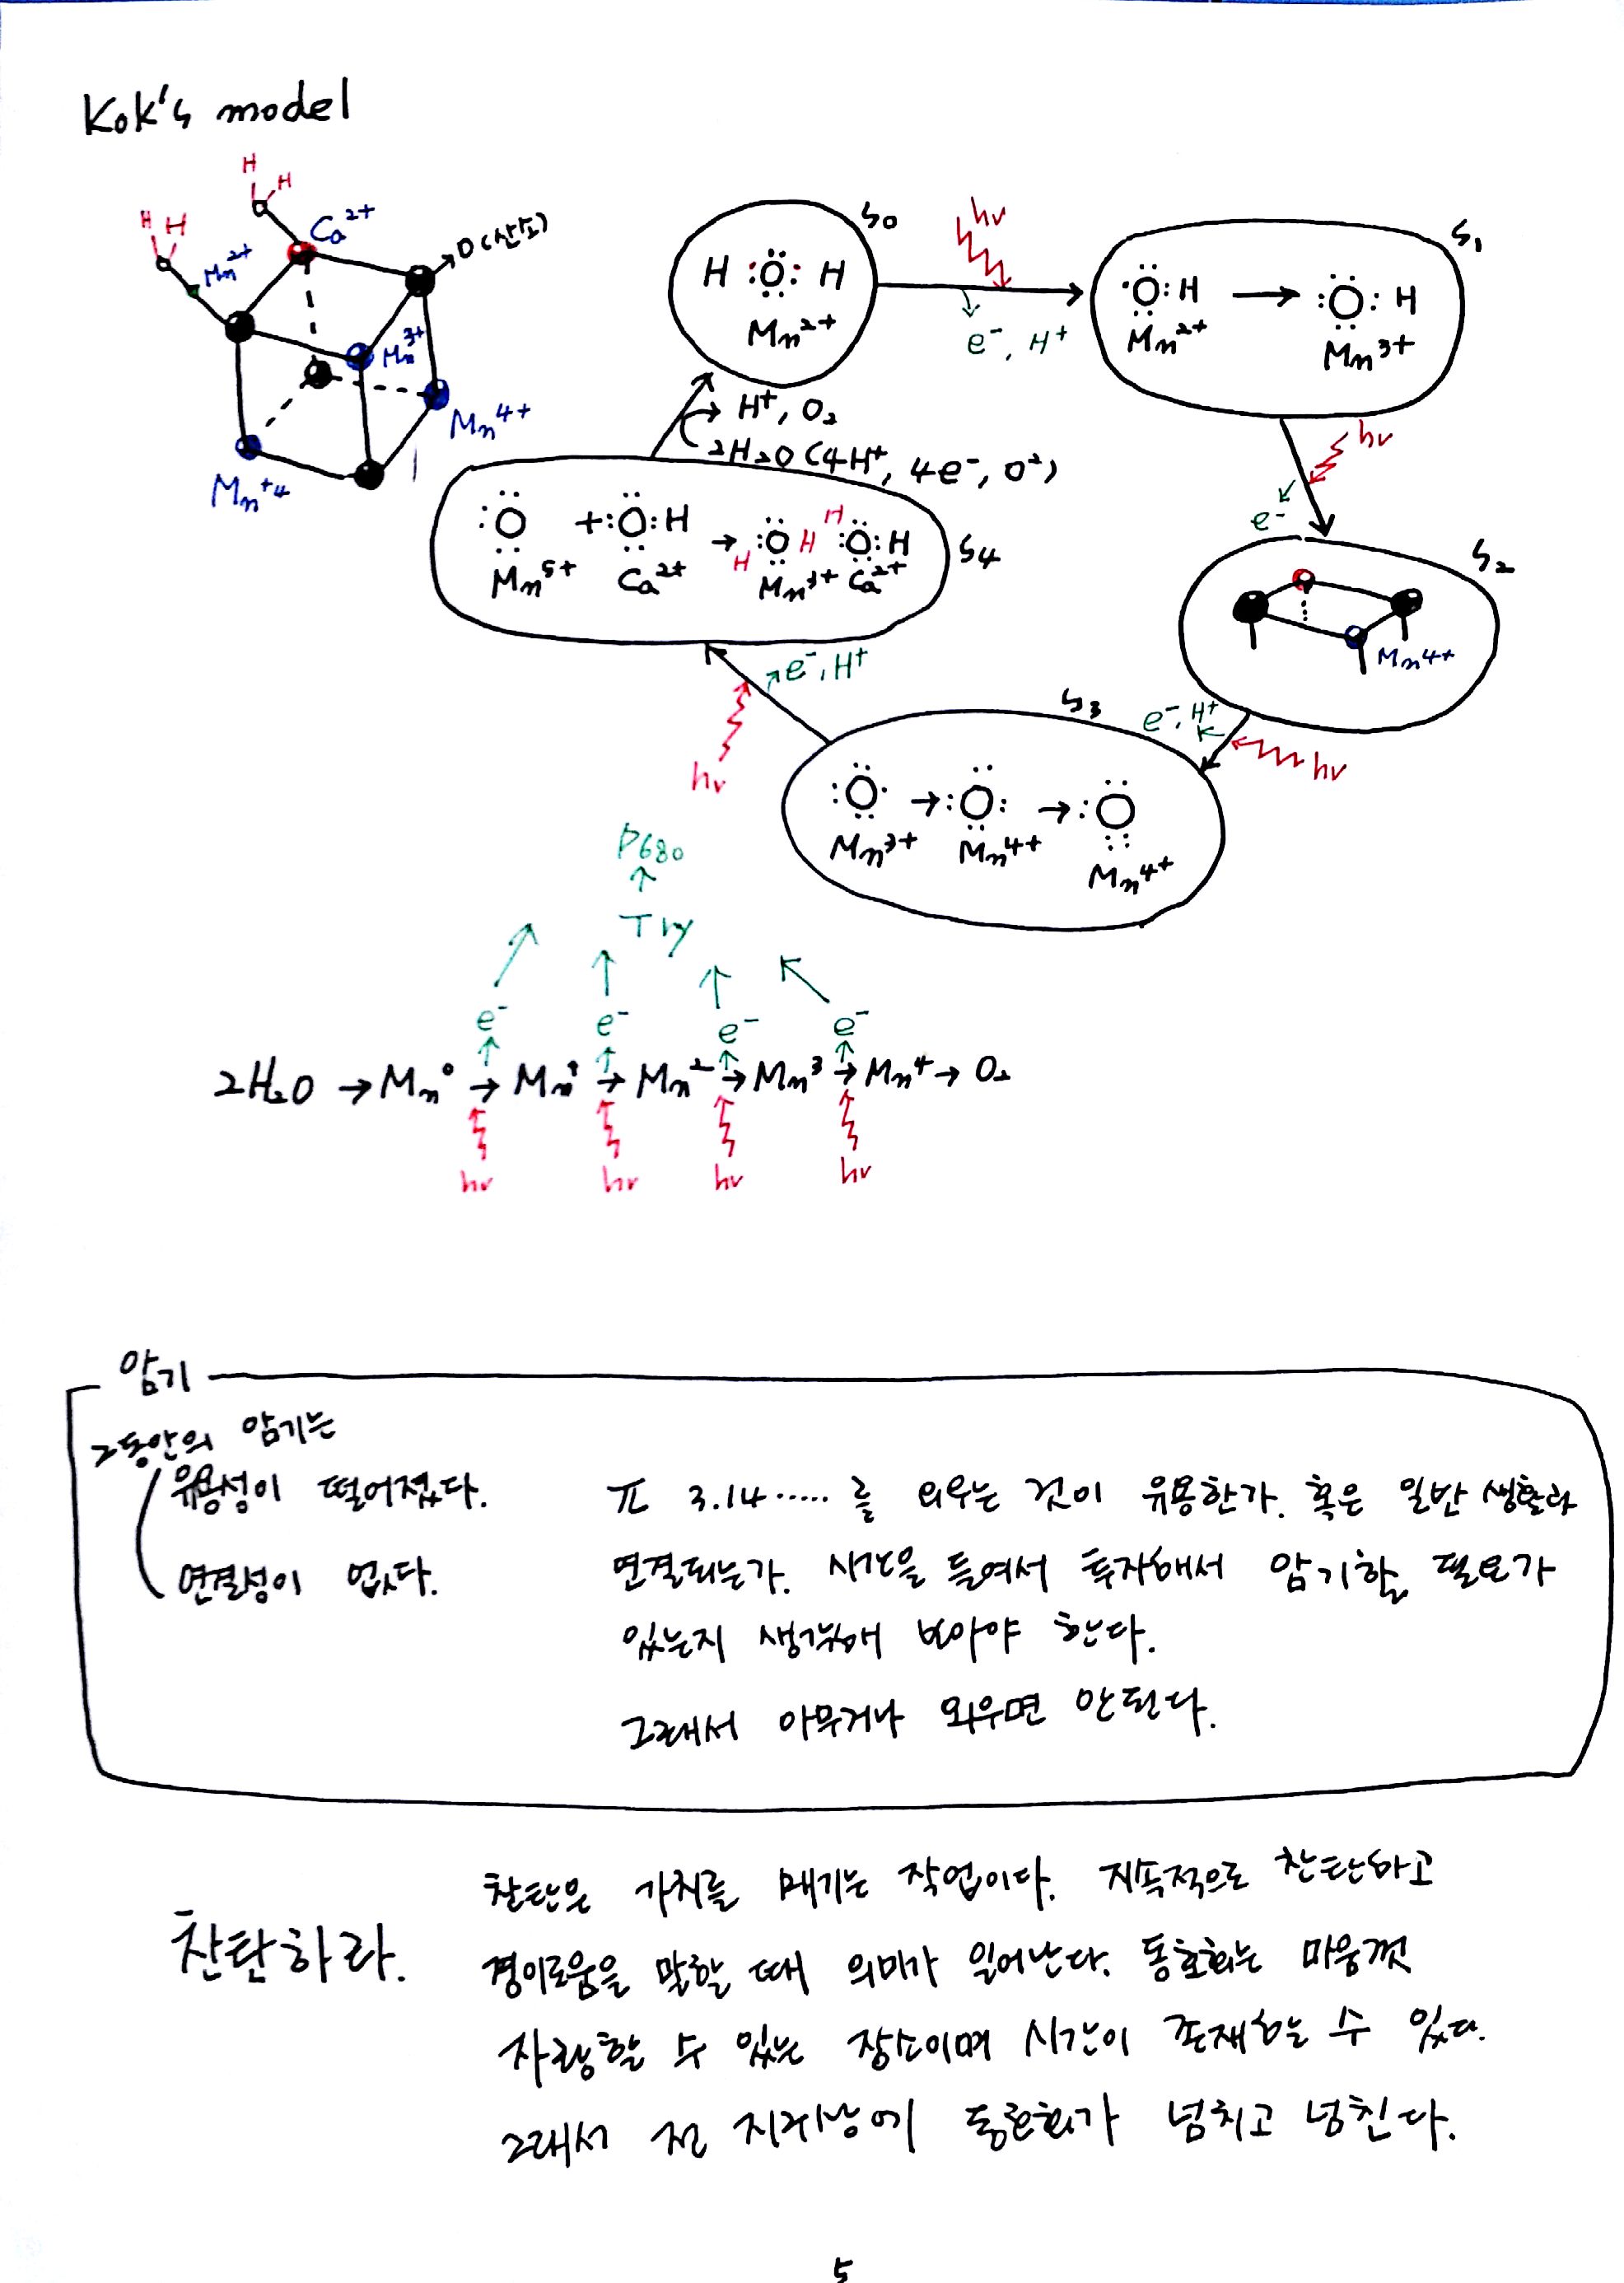 Kok's model
H H
H H
Ca²⁺
Mn²⁺
O(산소)
Mn³⁺
Mn⁴⁺
Mn⁺⁴
S₀
H :Ö: H
Mn²⁺
hν
e⁻, H⁺
S₁
·Ö:H → :Ö: H
Mn²⁺ Mn³⁺
hν
e⁻
S₂
Mn⁴⁺
e⁻, H⁺
hν
S₃
:Ö· → :Ö: → :Ö
Mn³⁺ Mn⁴⁺ Mn⁴⁺
e⁻, H⁺
hν
S₄
:Ö + :Ö:H → H :Ö H H :Ö:H
Mn⁵⁺ Ca²⁺ Mn³⁺ Ca²⁺
H⁺, O₂
2H₂O (4H⁺, 4e⁻, O²)
P680
↑
Try
e⁻ e⁻ e⁻ e⁻
2H₂O → Mn⁰ → Mn¹ → Mn² → Mn³ → Mn⁴ → O₂
hν hν hν hν
암기
그동안의 암기는
유용성이 떨어졌다.
연결성이 없다.
π 3.14..... 를 외우는 것이 유용한가. 혹은 일반 생활과
연결되는가. 시간을 들여서 투자해서 암기할 필요가
있는지 생각해 보아야 한다.
그래서 아무거나 외우면 안된다.
찬탄하라.
찬탄은 가치를 매기는 작업이다. 지속적으로 찬탄하고
경이로움을 말할 때 의미가 일어난다. 동호회는 마음껏
자랑할 수 있는 장소이며 시간이 존재하는 수 있다.
그래서 전 지구상에 동호회가 넘치고 넘친다.
5